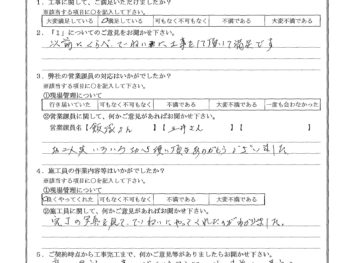 1．工事に関して、ご満足いただけましたか？
※該当する項目に○を記入して下さい。
大変満足している 満足している 可も不可も不可もなく 不満である 大変不満である
2．「1」についてのご意見をお聞かせ下さい。
以前にくらべてていねいに工事をして頂いて満足です
3．弊社の営業課員の対応はいかがでしたか？
※該当する項目に○を記入して下さい。
①現場管理について
行き届いていた 可も不可も不可もなく 不満である 大変不満である 一度も会わなかった
②営業課員に関して、何かご意見があればお聞かせ下さい。
営業課員名【飯塚さん】【 さん】【 】
いろいろ 頂きありがとうございました
4．施工員の作業内容等はいかがでしたか？
※該当する項目に○を記入して下さい。
①現場管理について
良くやってくれた 可も不可も不可もなく 不満である 大変不満である
②施工員に関して、何かご意見があればお聞かせ下さい。
完了の写真を見て、ていねいにやってくれたのがわかりました。
5．ご契約時点から工事完工まで、何かご意見等がありましたらお聞かせ下さい。